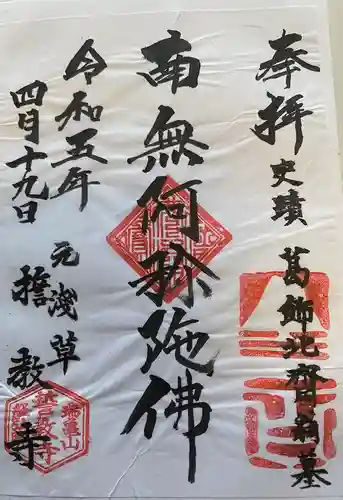 奉拝 史蹟 葛飾北斎翁墓
南無阿弥陀佛
令和五年
四月十九日
元浅草
誓教寺